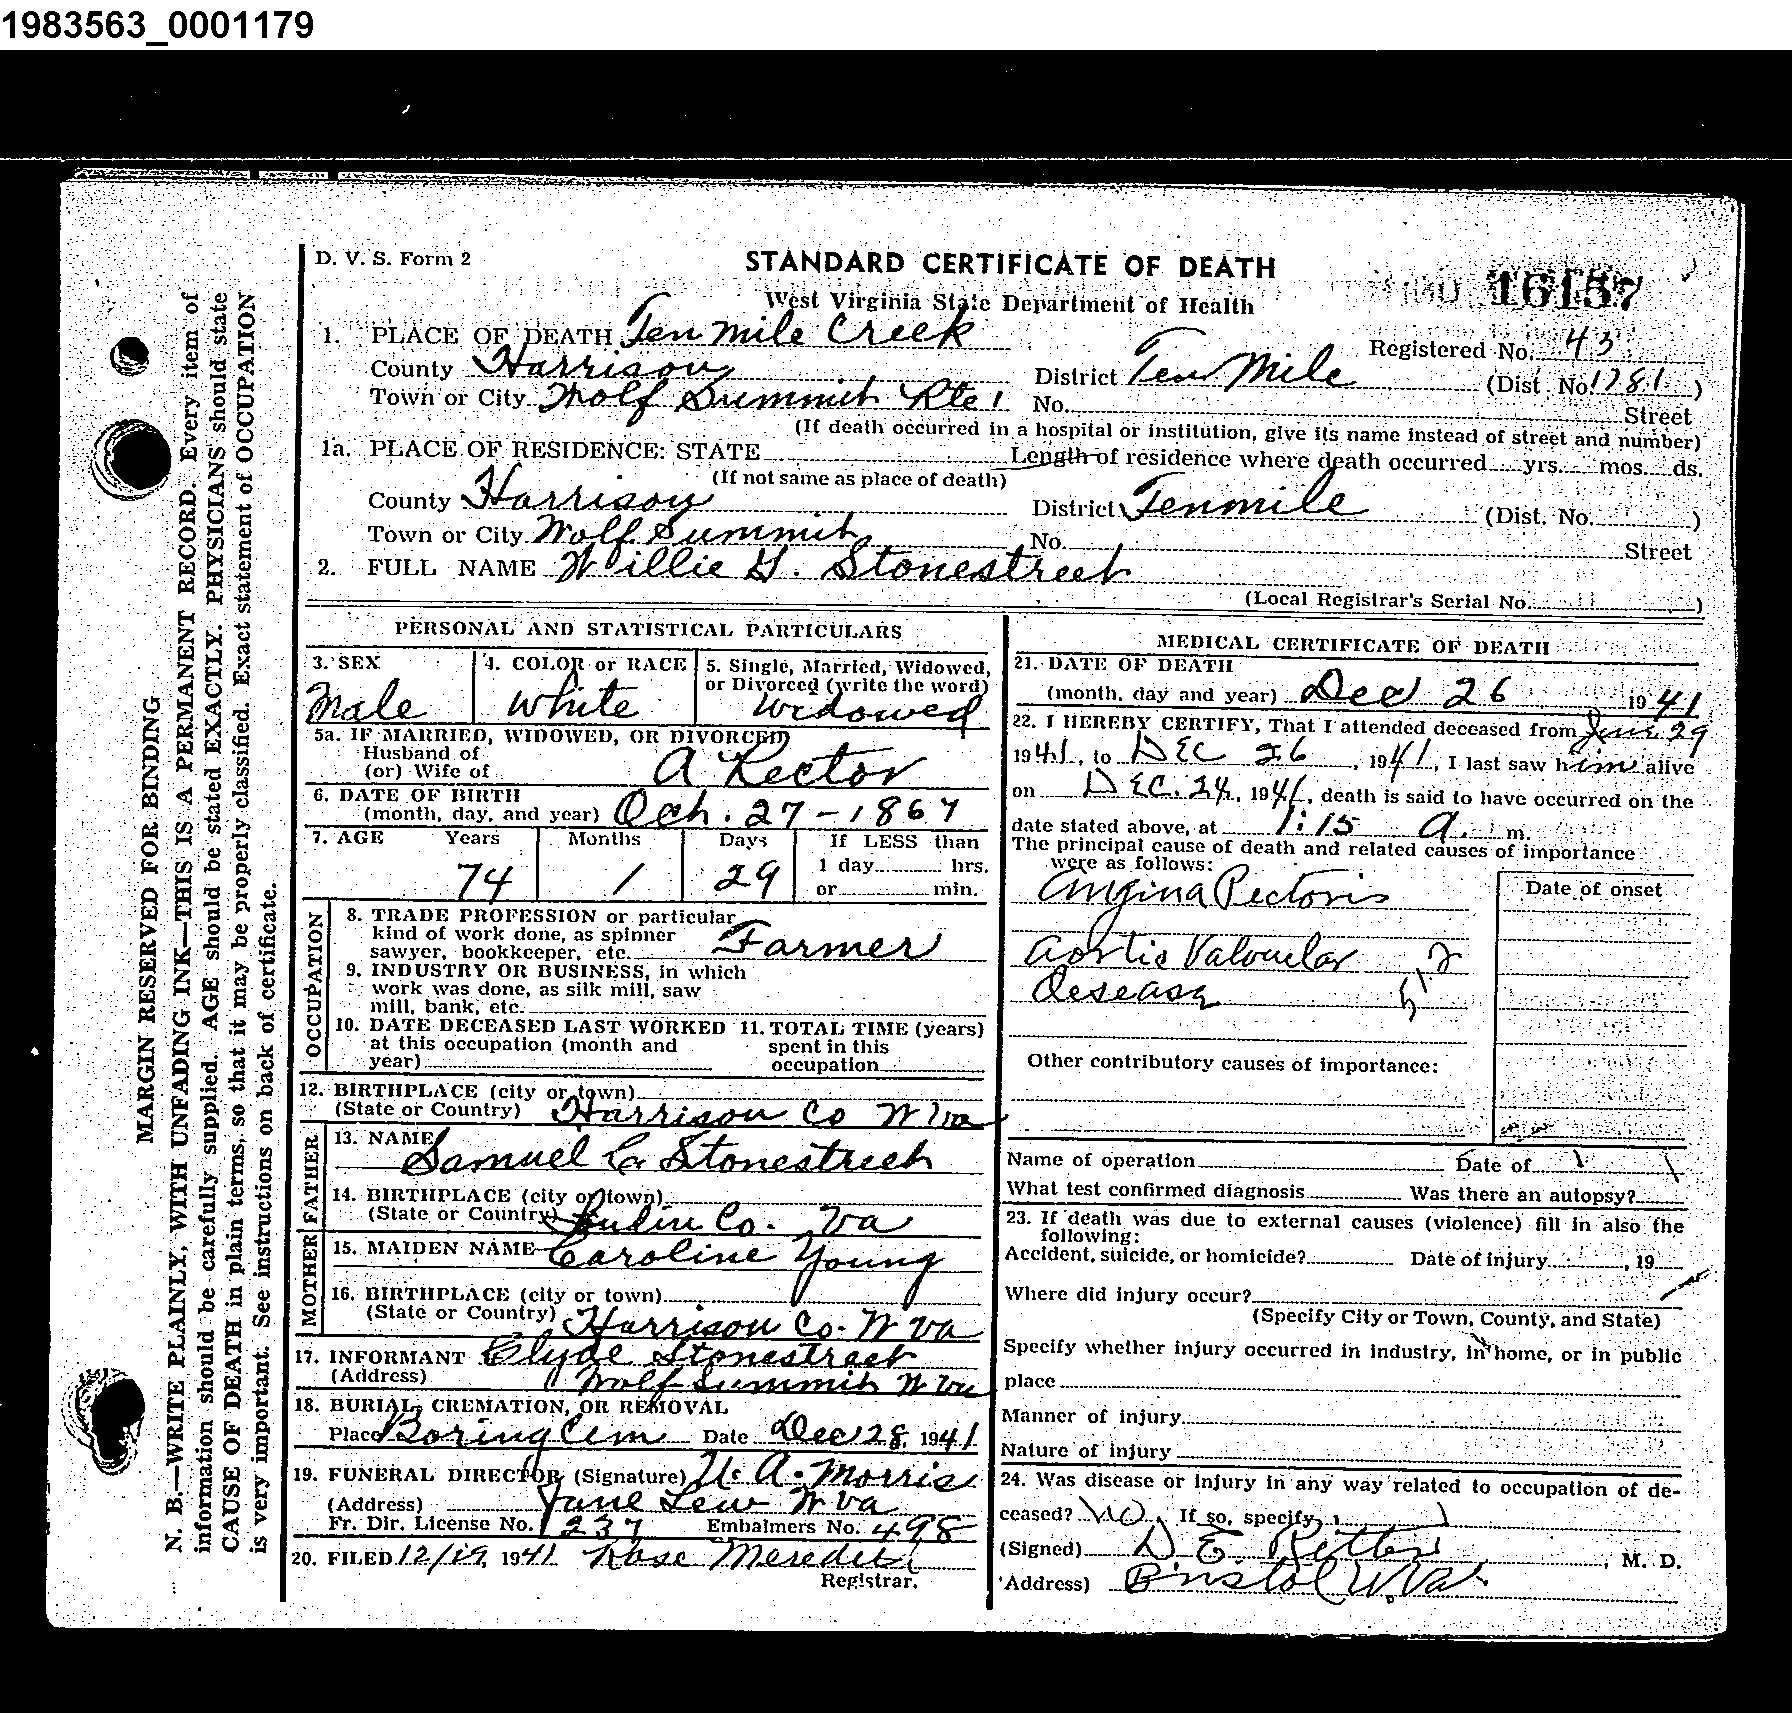 1983563_0001179
D. V. S. Form 2
STANDARD CERTIFICATE OF DEATH
West Virginia State Department of Health
16157
1. PLACE OF DEATH Ten mile Creek
Registered No. 43
County Harrison District Ten Mile (Dist. No. 1781)
Town or City Wolf Summit Rte 1 No. Street
(If death occurred in a hospital or institution, give its name instead of street and number)
1a. PLACE OF RESIDENCE: STATE Length of residence where death occurred yrs. mos. ds.
(If not same as place of death)
County Harrison District Tenmile (Dist. No. )
Town or City Wolf Summit No. Street
2. FULL NAME Willie G. Stonestreet
(Local Registrar's Serial No. )
MARGIN RESERVED FOR BINDING
N. B.—WRITE PLAINLY, WITH UNFADING INK—THIS IS A PERMANENT RECORD. Every item of
information should be carefully supplied. AGE should be stated EXACTLY. PHYSICIANS should state
CAUSE OF DEATH in plain terms, so that it may be properly classified. Exact statement of OCCUPATION
is very important. See instructions on back of certificate.
PERSONAL AND STATISTICAL PARTICULARS
3. SEX
Male
4. COLOR or RACE
White
5. Single, Married, Widowed,
or Divorced (write the word)
Widowed
5a. IF MARRIED, WIDOWED, OR DIVORCED
Husband of
(or) Wife of A Rector
6. DATE OF BIRTH
(month, day, and year) Oct. 27 - 1867
7. AGE Years Months Days If LESS than
1 day hrs.
74 1 29 or min.
OCCUPATION
8. TRADE PROFESSION or particular
kind of work done, as spinner
sawyer, bookkeeper, etc. Farmer
9. INDUSTRY OR BUSINESS, in which
work was done, as silk mill, saw
mill, bank, etc.
10. DATE DECEASED LAST WORKED
at this occupation (month and
year)
11. TOTAL TIME (years)
spent in this
occupation
12. BIRTHPLACE (city or town)
(State or Country) Harrison Co W Va
FATHER
13. NAME
Samuel C Stonestreet
14. BIRTHPLACE (city or town)
(State or Country) Co. Va
MOTHER
15. MAIDEN NAME Caroline Young
16. BIRTHPLACE (city or town)
(State or Country) Harrison Co. W Va
17. INFORMANT Clyde Stonestreet
(Address) Wolf Summit W Va
18. BURIAL, CREMATION, OR REMOVAL
Place Boring Cem Date Dec 28, 1941
19. FUNERAL DIRECTOR (Signature) U. A. Morris
(Address) Jane Lew W Va
Fr. Dir. License No. 237 Embalmers No. 498
20. FILED 12/19, 1941 Rose Meredith
Registrar.
MEDICAL CERTIFICATE OF DEATH
21. DATE OF DEATH
(month, day and year) Dec 26 1941
22. I HEREBY CERTIFY, That I attended deceased from June 29
1941, to DEC 26, 1941, I last saw him alive
on DEC. 24, 1941, death is said to have occurred on the
date stated above, at 1:15 a. m.
The principal cause of death and related causes of importance
were as follows:
Date of onset
Angina Pectoris
Aortic Valvular
Desease
Other contributory causes of importance:
Name of operation Date of
What test confirmed diagnosis Was there an autopsy?
23. If death was due to external causes (violence) fill in also the
following:
Accident, suicide, or homicide? Date of injury , 19
Where did injury occur?
(Specify City or Town, County, and State)
Specify whether injury occurred in industry, in home, or in public
place
Manner of injury
Nature of injury
24. Was disease or injury in any way related to occupation of de-
ceased? No If so, specify
(Signed) D. E. Ritter, M. D.
(Address) Bristol W. Va.